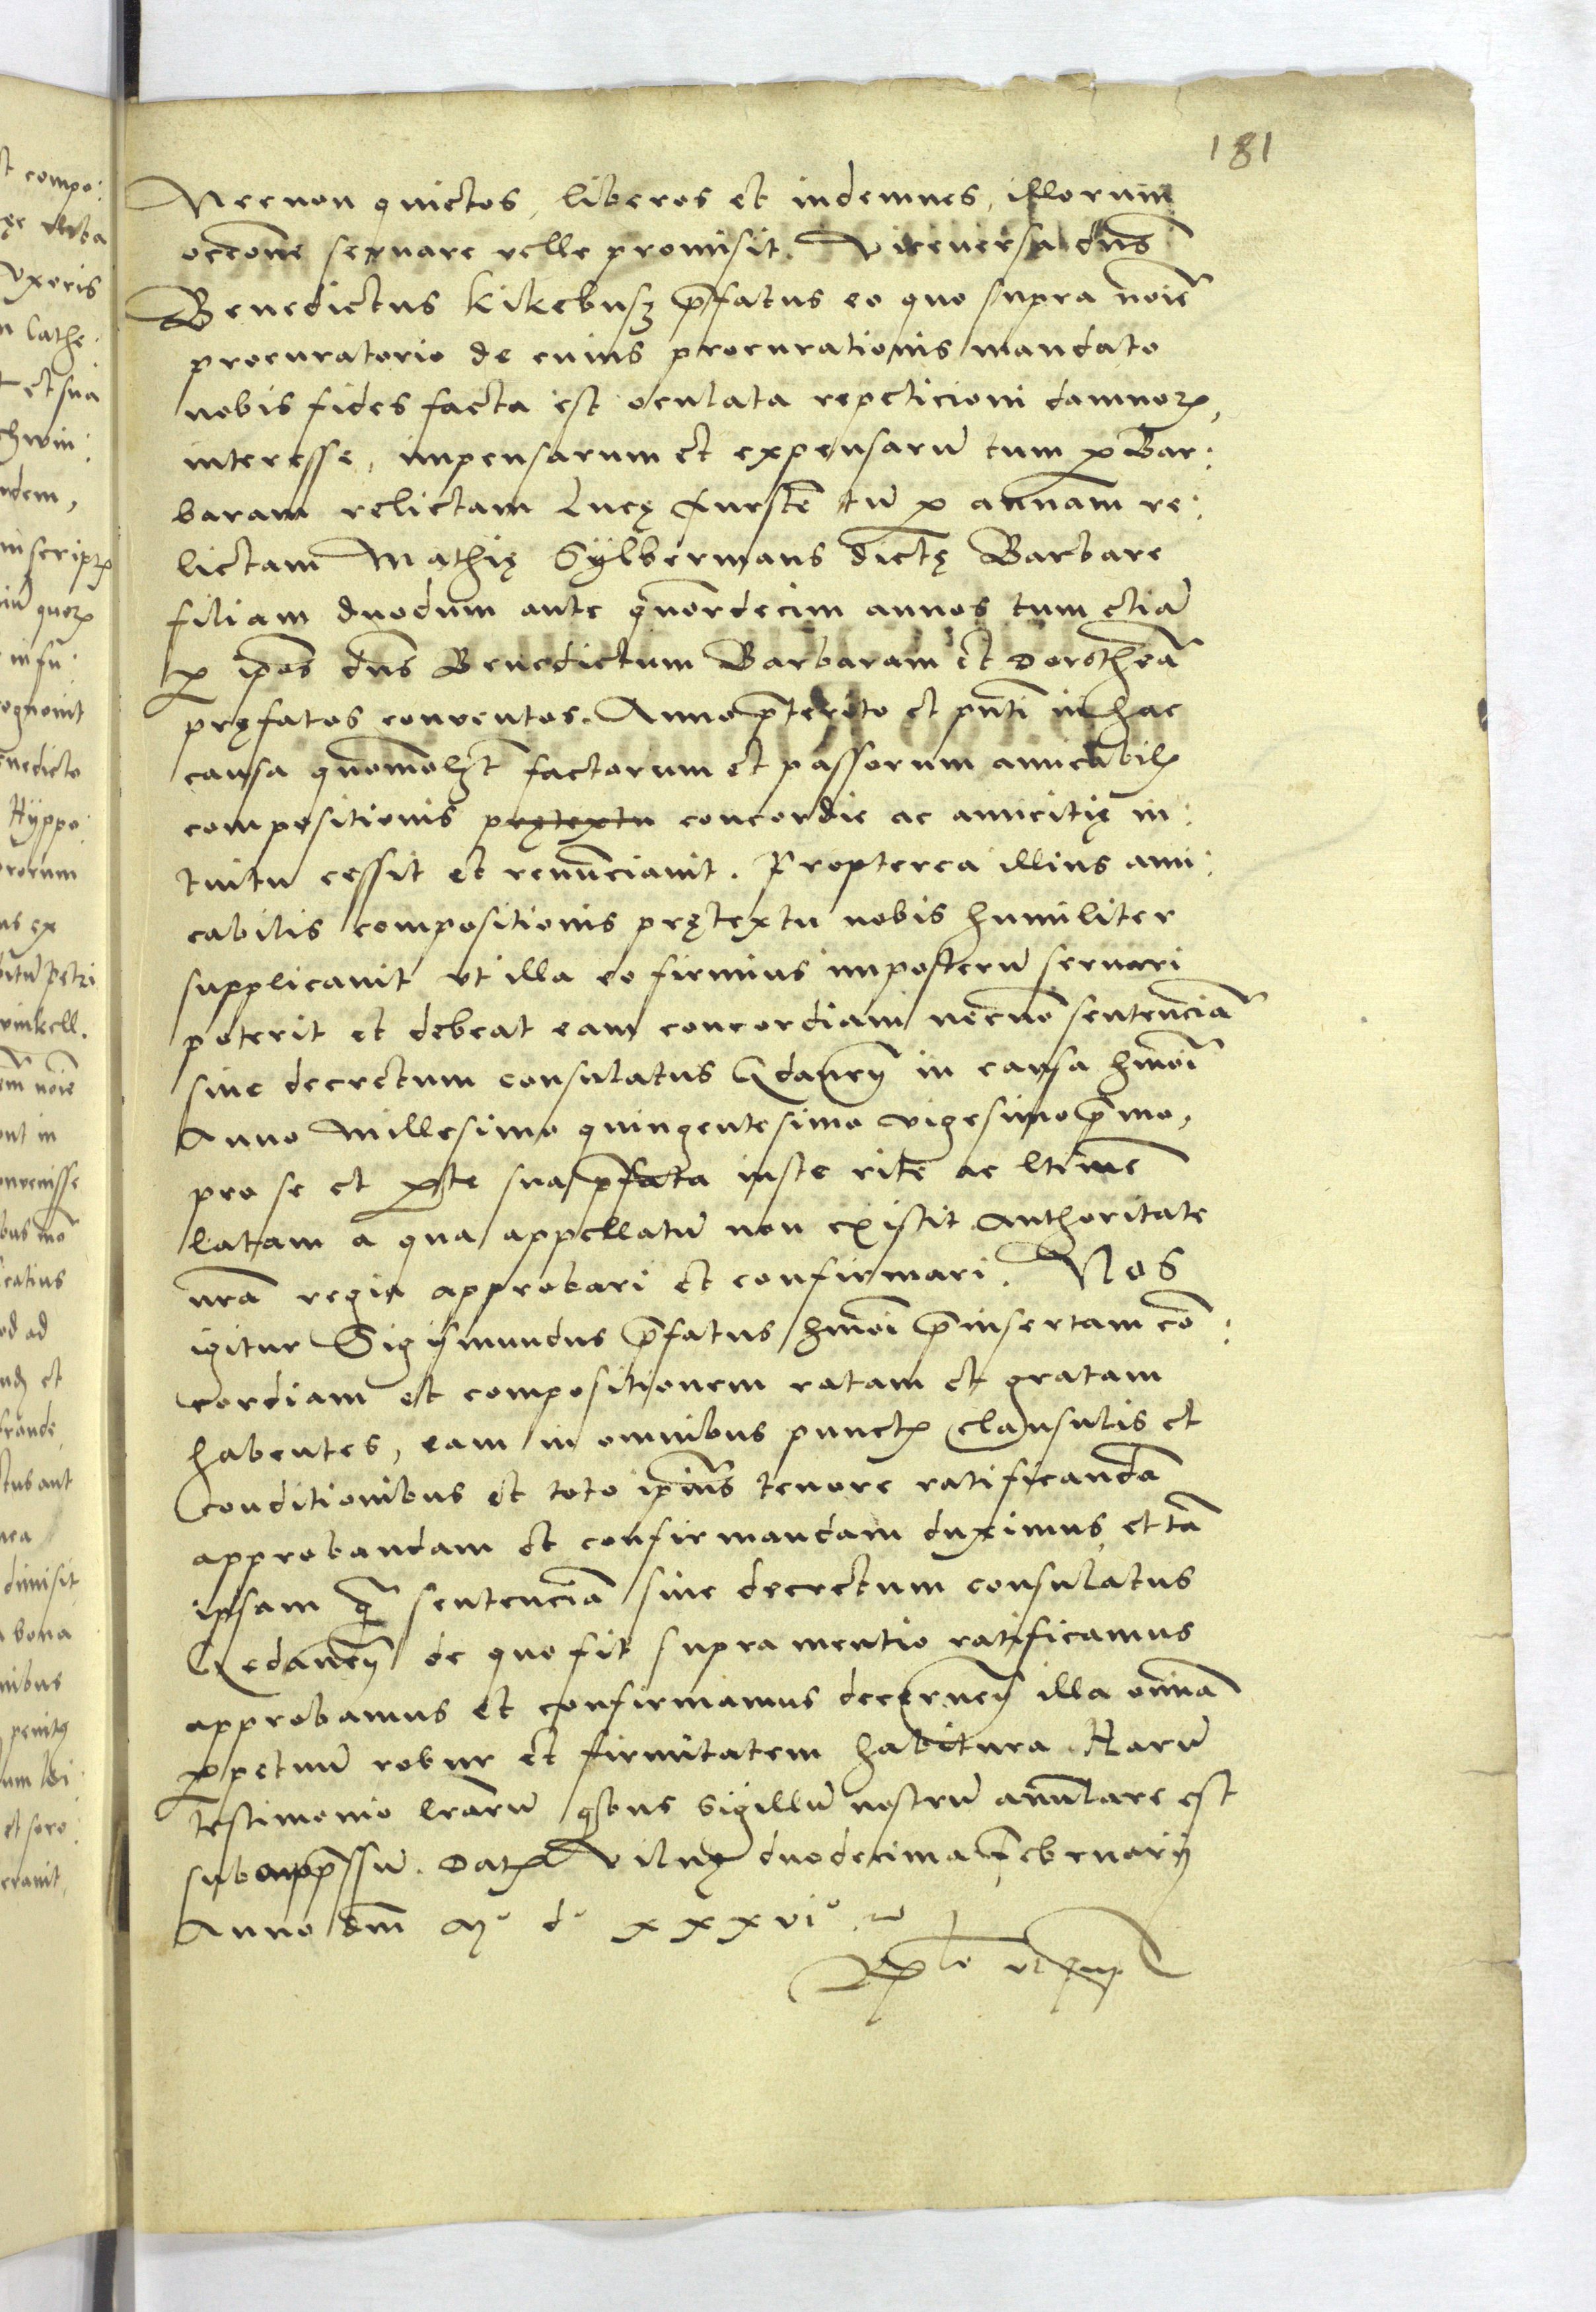 181
Necnon quietos, liberos et indemnes, illorum
occõne seruare velle promisit. Viceuersa dñs
Benedictus Kikebusz p̃fatus eo quo supra noiẽ
procuratorio de cuius procurationis mandato
nobis fides facta est oculata repeticioni damnoꝝ,
interesse, impensarum et expensarũ tum ꝑ Bar:
baram relictam Lucę Furstẽ tũ ꝑ annam re:
lictam Mathię Sÿlbermans dictę Barbare
filiam dudum ante quordecim annos tum etiã
ꝑ ip̃os dñs Benedictum Barbaram et Dorotheã
pręfatos conventos. Anno p̃terito et pñti in hac
causa quomolꝫt factorum et passorum amicabilꝭ
compositionis prętextu concordie ac amicitię in:
tuitu cessit et renunciauit. Propterea illius ami:
cabilis compositionis prętextu nobis humiliter
supplicauit vt illa eo firmius imposterũ seruari
poterit et debeat eam concordiam necnõ sentenciã
siue decretum consulatus Gdaneñ in causa hmõi
Anno Millesimo quingentesimo vigesimo p̃mo,
pro se et ꝑte sua p̃fata iuste rite ac ltime
latam a qua appellatũ non existit authoritate
nr̃a regia approbari et confirmari. Nos
igitur Sigismundus p̃fatus hmõi p̃insertam cõ:
cordiam et compositionem ratam et gratam
habentes, eam in omnibus punctꝭ clausulis et
conditionibus et toto ip̃ius tenore ratificandã
approbandam et confirmandam duximus, et tã
ipsam q̃ sentenciã siue decretum consulatus
Gedaneñ de quo fit supra mentio ratificamus
approbamus et confirmamus decerneñ illa omniã
ꝑpetuũ robur et firmitatem habitura. Harũ
testimonio lr̃arũ qibus sigillũ nostrũ anulare est
subapp̃ssũ. Datꝭ Vilnę duodecima Februarij
Anno dñi Mº dº xxxviº